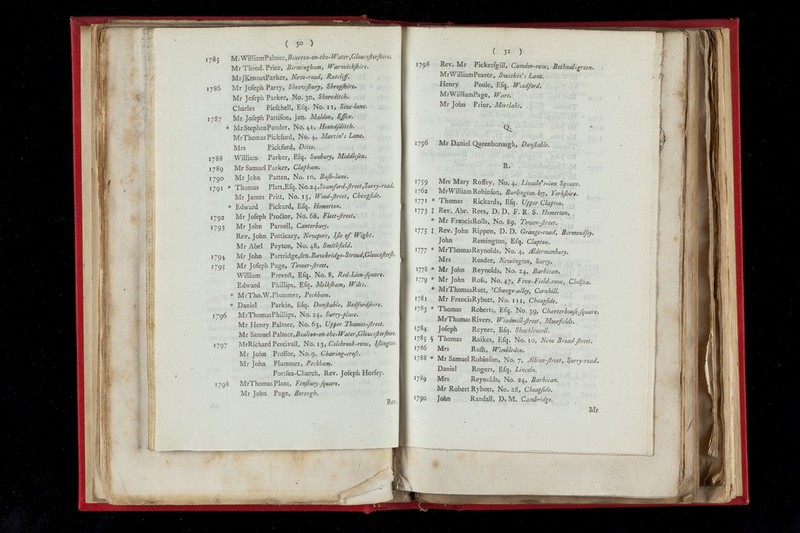 ( 30 )
1785 Mr WilliamPalmer, Bourton-on-the-Water, Gloucesterſhire.
Mr Theod. Price, Birmingham, Warwickſhire.
MrJKennetParker, New-road, Ratcliff.
1786 Mr Joſeph Parry, Shrewſbury, Shropſhire.
Mr Joſeph Parker, No. 30, Shoreditch.
Charles Pieſchell, Eſq. No. 11, Size-lane.
1787 Mr Joſeph Pattiſon, jun. Maldon, Eſſex.
* MrStephenPonder, No. 41, Houndſditch.
MrThomasPickford, No. 4, Martin's Lane.
Mrs Pickford, Ditto.
1788 William Parker, Eſq. Sunbury, Middleſex.
1789 Mr Samuel Parker, Clapham.
1790 Mr John Patten, No. 10, Buſh-lane.
1791 * Thomas Platt,Eſq. No.24,Stamford-ſtreet,Surry-road.
Mr James Pritt, No. 15, Wood-ſtreet, Cheapſide.
* Edward Pickard, Eſq. Homerton.
1792 Mr Joſeph Proctor, No. 68, Fleet-ſtreet.
1793 Mr John Parnell, Canterbury.
Rev. John Potticary, Newport, Iſle of Wight.
Mr Abel Peyton, No. 48, Smithfield.
1794 Mr John Partridge,ſen. Bowbridge-Stroud,Glouceſterſh.
1795 Mr Joſeph Page, Tower-ſtreet.
William Prevoſt, Eſq. No. 8, Red-Lion-ſquare.
Edward Phillips, Eſq. Melkſham, Wilts.
* MrTho.W.Plummer, Peckham.
* Daniel Parkin, Eſq. Dunſtable, Bedfordſhire.
1796 MrThomasPhillips, No. 24, Surry-place.
Mr Henry Palmer, No. 63, Upper Thames-ſtreet.
Mr Samuel Palmer,Bourton-on-the-Water,Glouceſterſhire.
1797 MrRichard Percivall, No. 13, Colebrook-row, Iſlington.
Mr John Proſſor, No. 9, Charing-croſs.
Mr John Plummer, Peckham.
Portſea-Church, Rev. Joſeph Horſey.
1798 MrThomasPlant, Finſbury-ſquare.
Mr John Page, Borough.
Rev.
( 31 )
1798 Rev. Mr Pickerſgill, Camden-row, Bethnal-green.
MrWilliamPearce, Swithin's Lane.
Henry Poole, Eſq. Woodford.
MrWilliamPage, Ware.
Mr John Prior, Mortlake.
Q.
1796 Mr Daniel Queenborough, Dunſtable.
R.
1759 Mrs Mary Roffey, No. 4, Lincoln's-inn Square.
1762 MrWilliam Robinſon, Burlington-key, Yorkſhire.
1771 * Thomas Rickards, Eſq. Upper Clapton.
1773 ‡ Rev. Abr. Rees, D. D. F. R. S. Homerton.
* Mr FrancisRolls, No. 89, Tower-ſtreet.
1775 ‡ Rev. John Rippon, D. D. Grange-road, Bermondſey.
John Remington, Eſq. Clapton.
1777 * MrThomasReynolds, No. 4, Aldermanbury.
Mrs Reader, Newington, Surry.
1778 * Mr John Reynolds, No. 24, Barbican.
1779 * Mr John Roſs, No. 47, Five-Field-row, Chelſea.
* MrThomasRutt, 'Change-alley, Cornhill.
1781 Mr FrancisRybott, No. 111, Cheapſide.
1783 * Thomas Roberts, Eſq. No. 39, Charterhouſe-ſquare.
MrThomasRivers, Windmill-ſtreet, Moorfields.
1784 Joſeph Reyner, Eſq. Shacklewell.
1785 § Thomas Raikes, Eſq. No. 10, New Broad ſtreet.
1786 Mrs Ruſh, Wimbledon.
1788 * Mr Samuel Robinſon, No. 7, Albion-ſtreet, Surry-road.
Daniel Rogers, Eſq. Lincoln.
1789 Mrs Reynolds, No. 24, Barbican.
Mr Robert Rybott, No. 28, Cheapſide.
1790 John Randall, D. M. Cambridge.
Mr